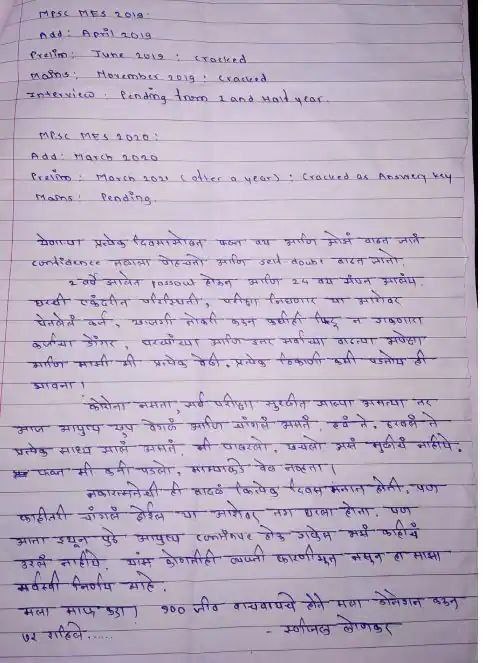 MPSC MES 2019:
Add: April 2019
Prelim: June 2019 : Cracked
Mains: November 2019 : Cracked
Interview: Pending from 2 and Half year.
MPSC MES 2020:
Add: March 2020
Prelim: March 2021 (after a year) : Cracked as Answery key
Mains: Pending.
येणाऱ्या प्रत्येक दिवसासोबत फक्त वय आणि ओझं वाढत जातं
confidence तळाला पोहचतो आणि self doubt वाढत जातो.
2 वर्षे झालेत passout होऊन आणि 24 वय संपत आलंय.
घरची एकंदरीत परिस्थिती, परीक्षा निघणार या आशेवर
घेतलेलं कर्ज, खाजगी नोकरी करून कधीही फिटू न शकणारा
कर्जाचा डोंगर, घरच्यांच्या आणि इतर सर्वांच्या वाढत्या अपेक्षा
आणि मी प्रत्येक वेळी, प्रत्येक ठिकाणी कमी पडतोय ही
भावना।
कोरोना नसता, सर्व परीक्षा सुरळीत झाल्या असत्या तर
आज आयुष्य खूप वेगळं आणि चांगलं असतं. हवं ते, ठरवलं ते
प्रत्येक साध्य झालं असतं. मी घाबरलो, खचलो असं मुळीच नाहीये.
फक्त मी कमी पडलो, माझ्याकडे वेळ नव्हता।
नकारात्मतेची ही वादळं कित्येक दिवस मनात होती, पण
काहीतरी चांगलं होईल या आशेवर तग धरला होता. पण
आता इथून पुढे आयुष्य continue होऊ शकेल असं काहीच
उरलं नाहीये. यास कोणतीही व्यक्ती कारणीभूत नसून हा माझा
सर्वस्वी निर्णय आहे.
मला माफ करा। १०० जीव वाचवायचे होते मला डोनेशन करून
७२ राहिले......
- स्वप्नील लोणकर